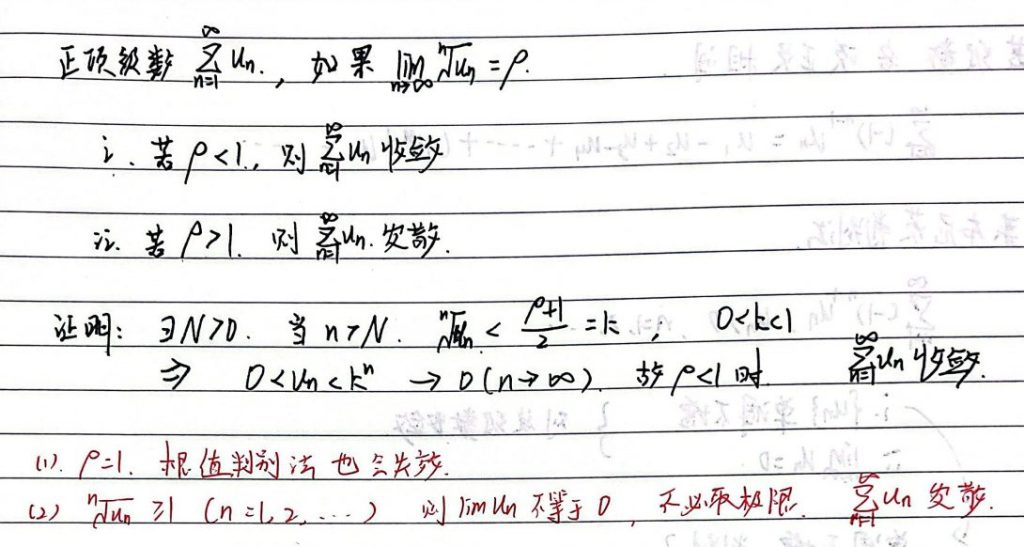 正项级数 ∑_{n=1}^{∞} u_n., 如果 lim_{n→∞} ⁿ√u_n = ρ.
i. 若 ρ<1, 则 ∑_{n=1}^{∞} u_n 收敛
ii. 若 ρ>1. 则 ∑_{n=1}^{∞} u_n. 发散.
证明: ∃N>0. 当 n>N. ⁿ√u_n < (ρ+1)/2 = k, 0<k<1
⇒ 0<u_n<kⁿ → 0 (n→∞). 故 ρ<1 时 ∑_{n=1}^{∞} u_n 收敛.
(1). ρ=1. 根值判别法也会失效.
(2) ⁿ√u_n ≥1 (n=1,2,...) 则 lim u_n 不等于 0, 不必取极限. ∑_{n=1}^{∞} u_n 发散.